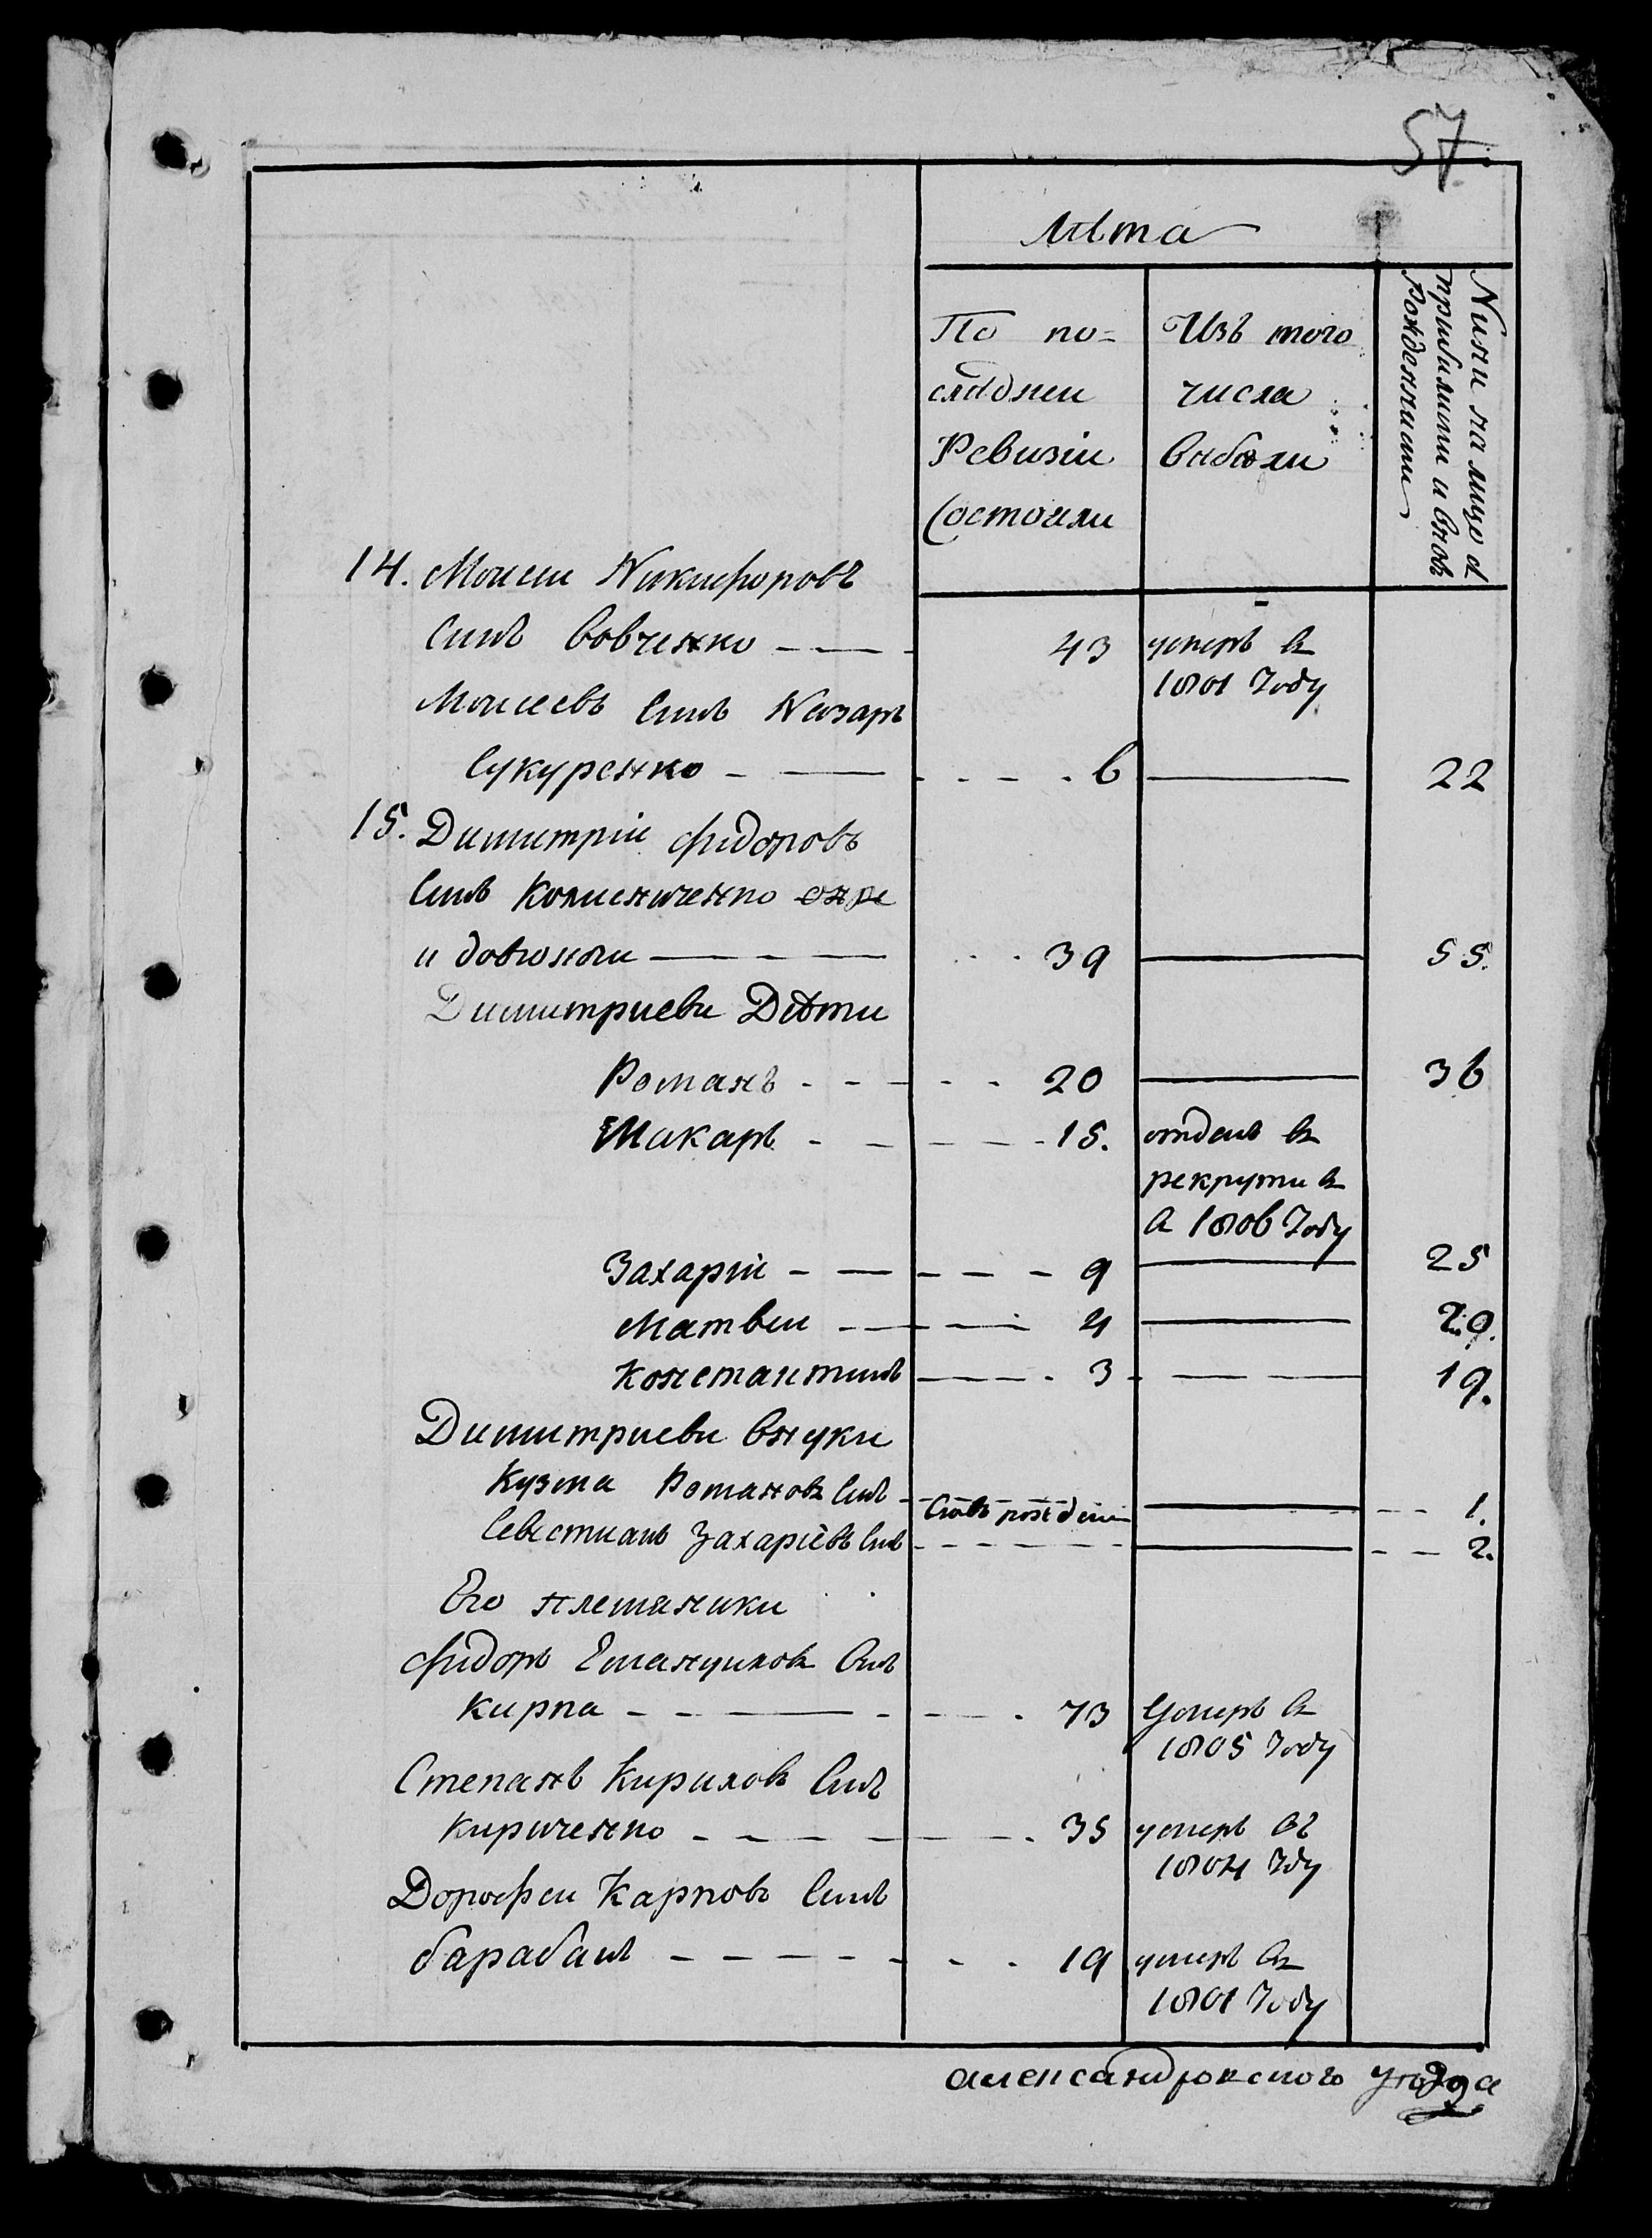 57
Лѣта
По по=
слѣднеи
Ревизіи
Состояли
Изъ того
числа
выбыли
Нини на лицо съ
прибилими и вновь
рожденними
14. Моисеи Никифоровъ
Синъ Вовченко 43 умеръ въ
1801 Году
Моисеевъ Синъ Назаръ
Сукуренко 6 22
15. Димитріи Фидоровъ
Синъ Колисниченко онже
и довгоноги 39 55.
Димитриеви Дѣти
Романъ 20 36
Макаръ 15. отданъ въ
рекрути въ
в 1806 Году
Захаріи 9 25
Матвеи 4 20.
Константинъ 3 19.
Димитриеви внуки
Кузма Романовъ Синъ вновь рожденн 1.
Севестианъ Захаріевъ Синъ 2.
Его племяники
Фидоръ Емануиловъ Синъ
Кирпа 73 Умеръ въ
1805 Году
Степанъ Кириловъ Синъ
Кириченко 35 умеръ въ
1804 Году
Дорофеи Карповъ Синъ
барабашъ 19 умеръ въ
1801 Году
александровского уезда
29